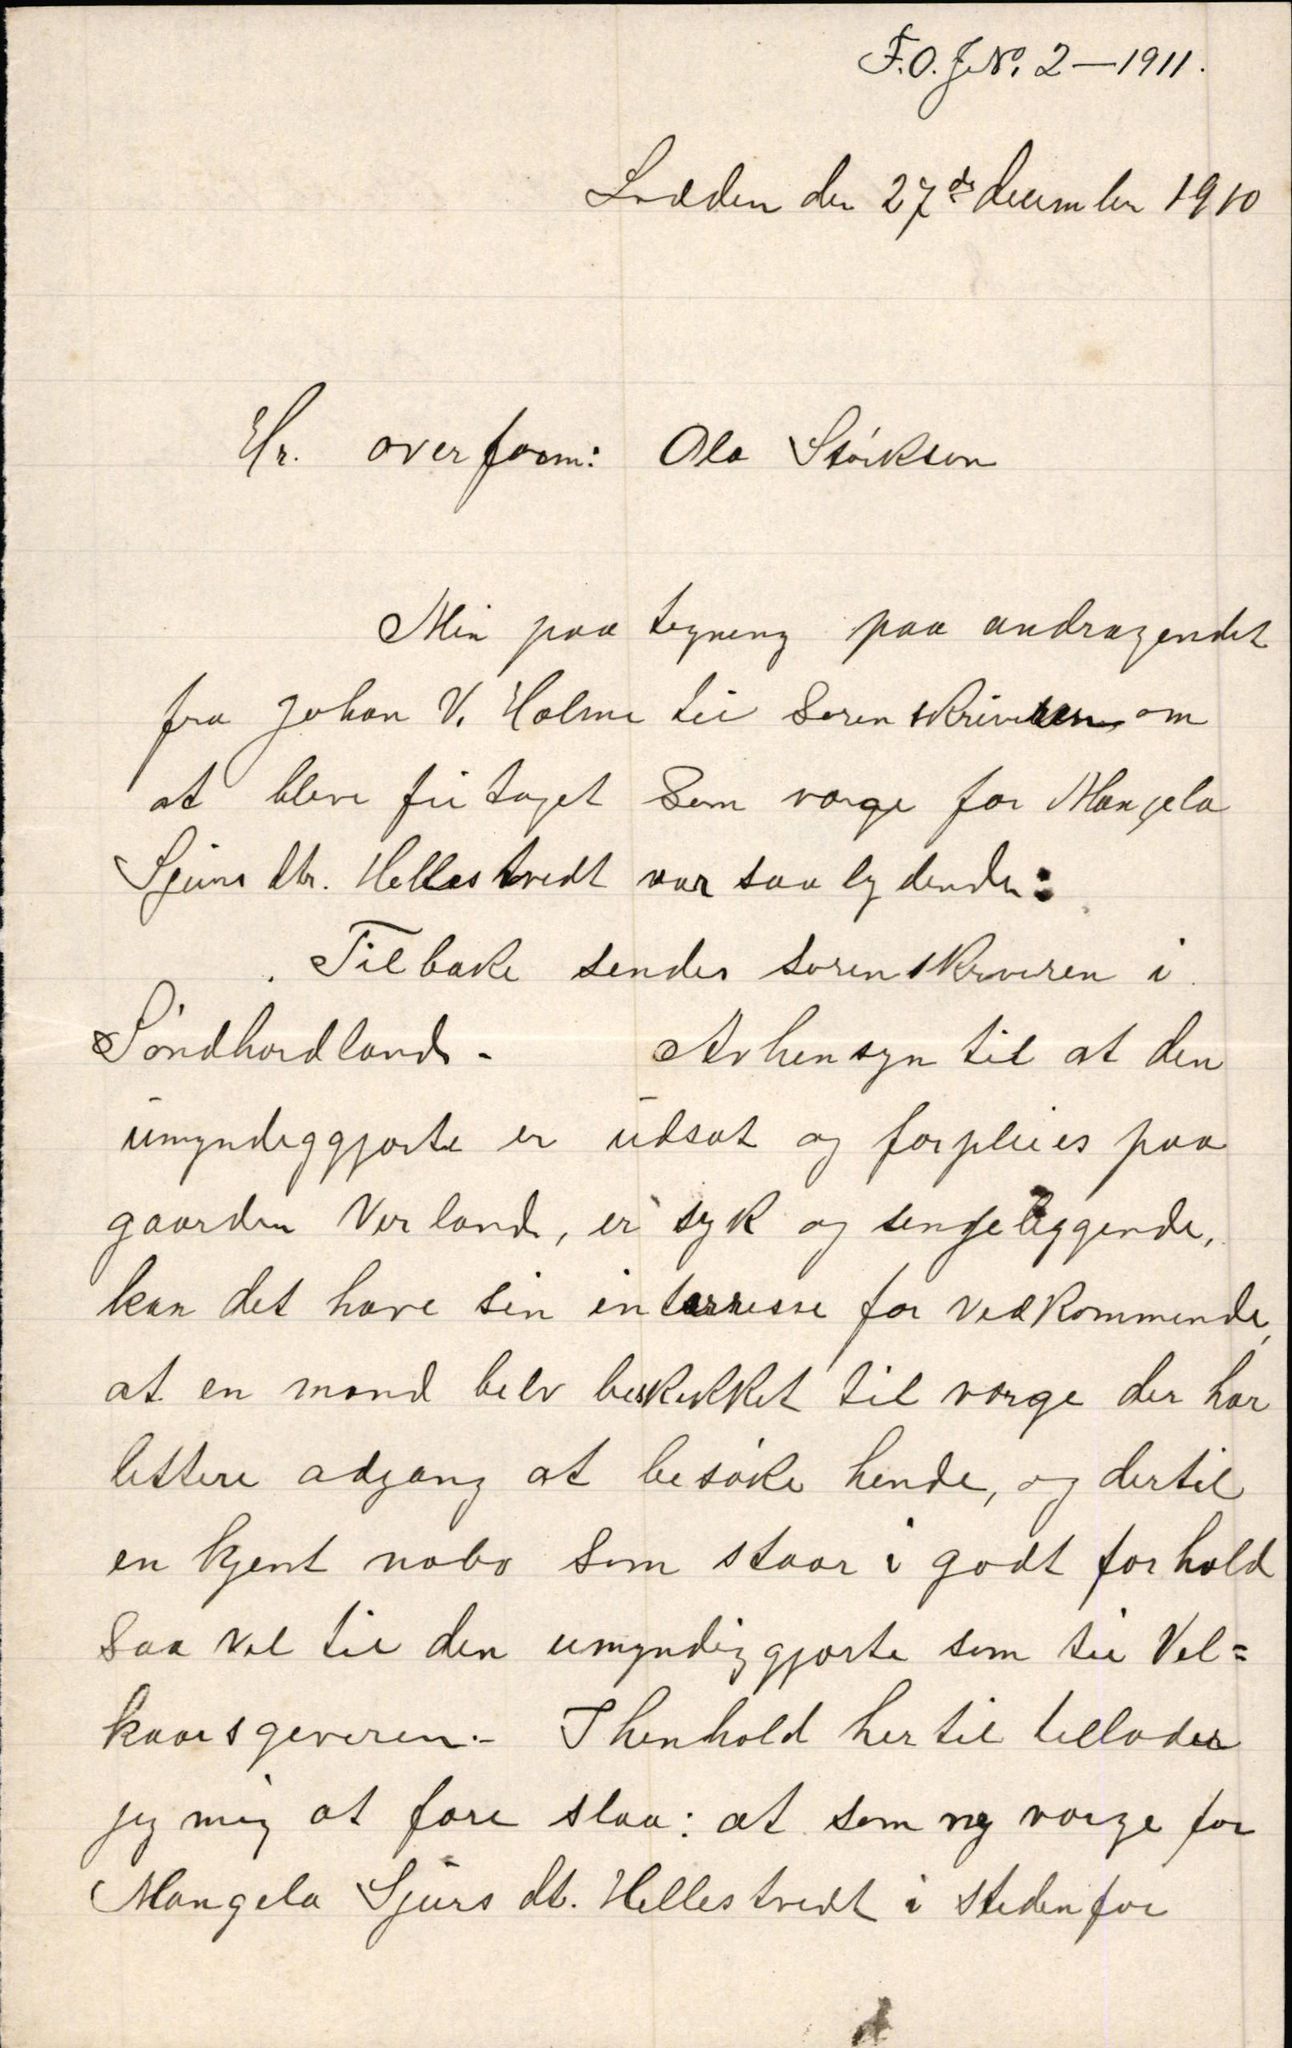 F.O.J.No. 2 — 1911.
Lædden den 27de december 1910
Hr. overform: Ola Störkson
Min paa tegning paa andragendet
fra Johan V. Holme til Sorenskriveren om
at bleve fri taget Som værge for Mangela
Sjurs dtr. Hellestvedt var saa lydende:
Tilbake sendes sorenskriveren i
Söndhordland. - Avhensyn til at den
umyndiggjorte er udsat og forpleies paa
gaarden Verland, er syk og sengeliggende,
kan det have sin interresse for vedkommende,
at en mand belv beskikket til værge der har
lettere adgang at besöke hende, og dertil
en kjent nabo som staar i godt forhold
saa vel til den umyndiggjorte som til Vel=
kaarsgeveren. - I henhold hertil tillader
jeg mig at fore slaa: at som ny værge for
Mangela Sjurs dt. Hellestvedt i stedenfor